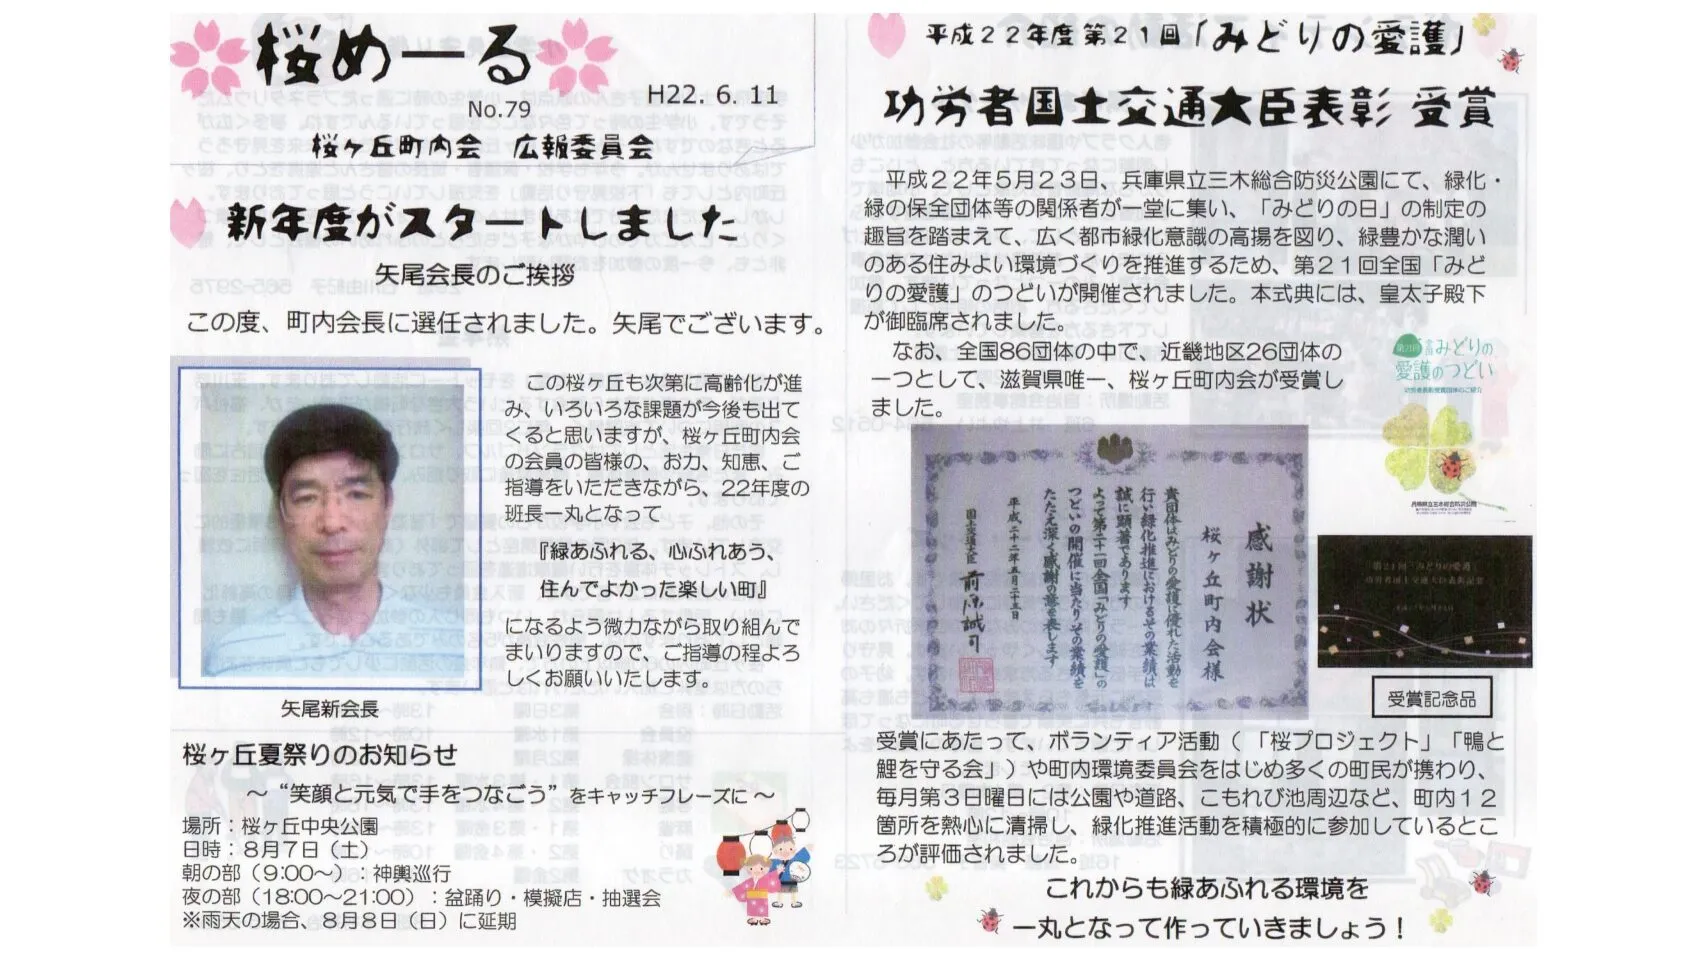 桜めーる
No.79
H22. 6. 11
桜ヶ丘町内会 広報委員会
新年度がスタートしました
矢尾会長のご挨拶
この度、町内会長に選任されました。矢尾でございます。
この桜ヶ丘も次第に高齢化が進
み、いろいろな課題が今後も出て
くると思いますが、桜ヶ丘町内会
の会員の皆様の、お力、知恵、ご
指導をいただきながら、22年度の
班長一丸となって
『緑あふれる、心ふれあう、
住んでよかった楽しい町』
になるよう微力ながら取り組んで
まいりますので、ご指導の程よろ
しくお願いいたします。
矢尾新会長
桜ヶ丘夏祭りのお知らせ
～ “笑顔と元気で手をつなごう” をキャッチフレーズに ～
場所：桜ヶ丘中央公園
日時：８月７日（土）
朝の部（9:00～）：神輿巡行
夜の部（18:00～21:00）：盆踊り・模擬店・抽選会
※雨天の場合、８月８日（日）に延期
平成２２年度第２１回「みどりの愛護」
功労者国土交通大臣表彰 受賞
平成２２年５月２３日、兵庫県立三木総合防災公園にて、緑化・
緑の保全団体等の関係者が一堂に集い、「みどりの日」の制定の
趣旨を踏まえて、広く都市緑化意識の高揚を図り、緑豊かな潤い
のある住みよい環境づくりを推進するため、第２１回全国「みど
りの愛護」のつどいが開催されました。本式典には、皇太子殿下
が御臨席されました。
なお、全国86団体の中で、近畿地区26団体の
一つとして、滋賀県唯一、桜ヶ丘町内会が受賞し
ました。
第21回 全国みどりの
愛護のつどい
功労者表彰受賞団体のご紹介
兵庫県立三木総合防災公園
感謝状
桜ヶ丘町内会様
貴団体はみどりの愛護に優れた活動を
行い緑化推進におけるその業績は
誠に顕著であります
よって第二十一回全国「みどりの愛護」の
つどいの開催に当たりその業績を
たたえ深く感謝の意を表します
平成二十二年五月二十三日
国土交通大臣 前原誠司
第２１回「みどりの愛護」
功労者国土交通大臣表彰記念
受賞記念品
受賞にあたって、ボランティア活動（「桜プロジェクト」「鴨と
鯉を守る会」）や町内環境委員会をはじめ多くの町民が携わり、
毎月第３日曜日には公園や道路、こもれび池周辺など、町内１２
箇所を熱心に清掃し、緑化推進活動を積極的に参加しているとこ
ろが評価されました。
これからも緑あふれる環境を
一丸となって作っていきましょう！